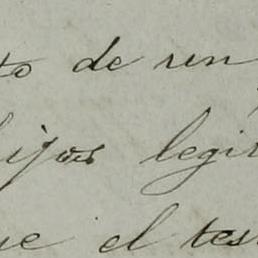 to de un
hijos legit
ue el test